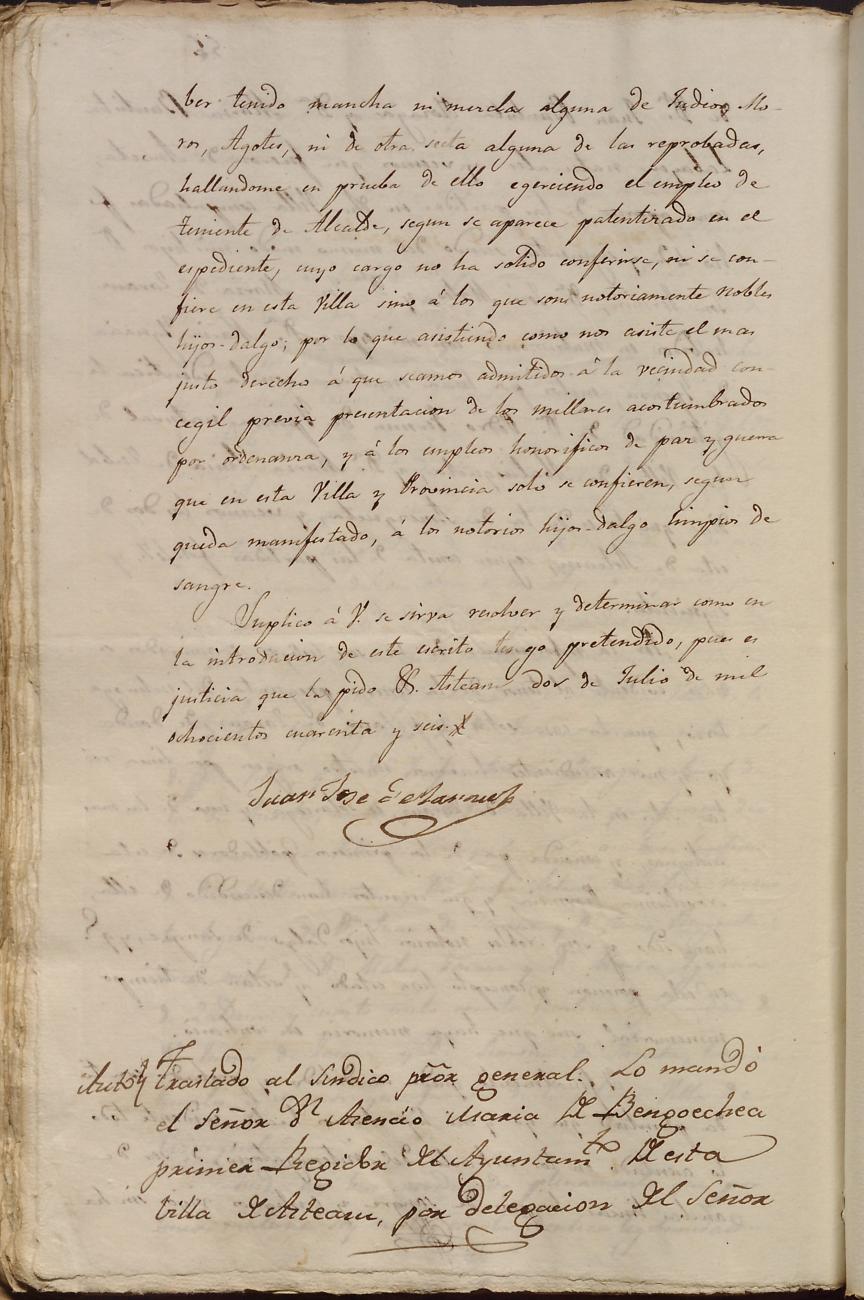 ber tenido mancha ni mezcla alguna de Judios, Mo-
ros, Agotes, ni de otra secta alguna de las reprobadas,
hallandome en prueba de ello egerciendo el empleo de
teniente de Alcalde, segun se aparece patentizado en el
espediente, cuyo cargo no ha solido conferirse, ni se con-
fiere en esta Villa sino á los que son notoriamente nobles
hijos-dalgo; por lo que asistiendo como nos asiste el mas
justo derecho á que seamos admitidos á la vecindad con-
cegil previa presentacion de los millares acostumbrados
por ordenanza, y á los empleos honorificos de paz y guerra
que en esta Villa y Provincia solo se confieren, segun
queda manifestado, á los notorios hijos-dalgo limpios de
sangre.
Suplico á V. se sirva resolver y determinar como en
la introducion de este escrito tengo pretendido, pues es
justicia que la pido &. Asteasu dos de Julio de mil
ochocientos cuarenta y seis
Juan Jose de
Auto Traslado al Sindico prōr general. Lo mandó
el Señor Dn Asencio Maria de Bengoechea
primer Regidor del Ayuntamto de esta
Villa de Asteasu, por delegacion del Señor